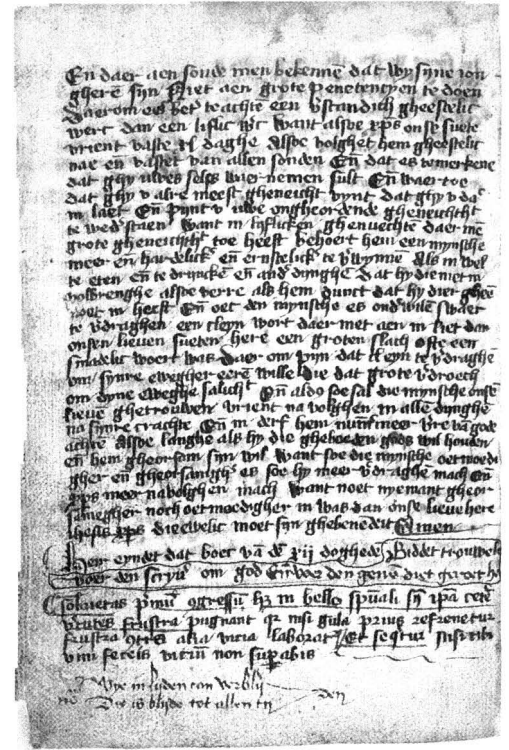 En daer aen soude men bekennē dat wy syne ion
gherē syn Niet aen grote penetencyen te doen
Daerom es het te achte een vstandich gheestelic
werc dan een liflic wc Want alsoe xps onse suete
vrient vaste xl daghe Alsoe volghet hem gheestelic
nae en vastet van allen sonden En dat es te merkene
dat ghy uwes selfs waer nemen sult En waer toe
dat ghy v alre meest gheneicht vynt dat ghy v dac
in laet En pynt v uwe ongheordende gheneichtht
te wedstaen Want in lyflicken ghenuechte daer mē
grote gheneichtht toe heeft behoert hem een mynsche
meer en hardelick en ernstelick te vwynnē Als in wel
te eten en te drincken en and dinghe Dat hy die niet en
volbrenghe alsoe verre als hem dunct dat hy dier gheē
noet in heeft En oec den mynsche es ondwilē swaer
te vdraghen een cleyn wort daer met aen en liet dan
onsen lieven sueten here een groten slach ofte een
smadelic woert was daer om pyn dat cleyn te vdraghē
om synre ewegher eerē wille die dat grote vdroech
om dyne eweghe salicht En aldus soe sal die mynsche onsē
lievē ghetrouwen vrient na volghen in allē dinghē
na synre crachte En en derf hem nummermeer vre vā gode
achtē Alsoe langhe als hy die gheboden gods wil houden
en hem ghehorsam syn wil Want soe die mynsche oetmoedi
gher en ghehorsamigher es soe hy meer vdraghē mach En
xps meer navolghen mach Want noet nyemant gheor
samegher noch oetmoedigher en was dan onse lieve here
ihesus xps die ewelic moet syn ghebenedeit Amen
Hier eyndet dat boec vā dē xij doghedē Biddet trouwelic
voer den scryv om god En voer den genē diet geret
sobrietas prīmū ogressū hz in bello spūali sn ipā cetē
vtutes frustra pugnant qr nisi gula prius refrenetur
frustra otrs alia vicia laborat Et sequitur nisi tibi
vim feceis vitiū non supabis
Wye in lyden can verbly
Die is blyde tot allen ty den